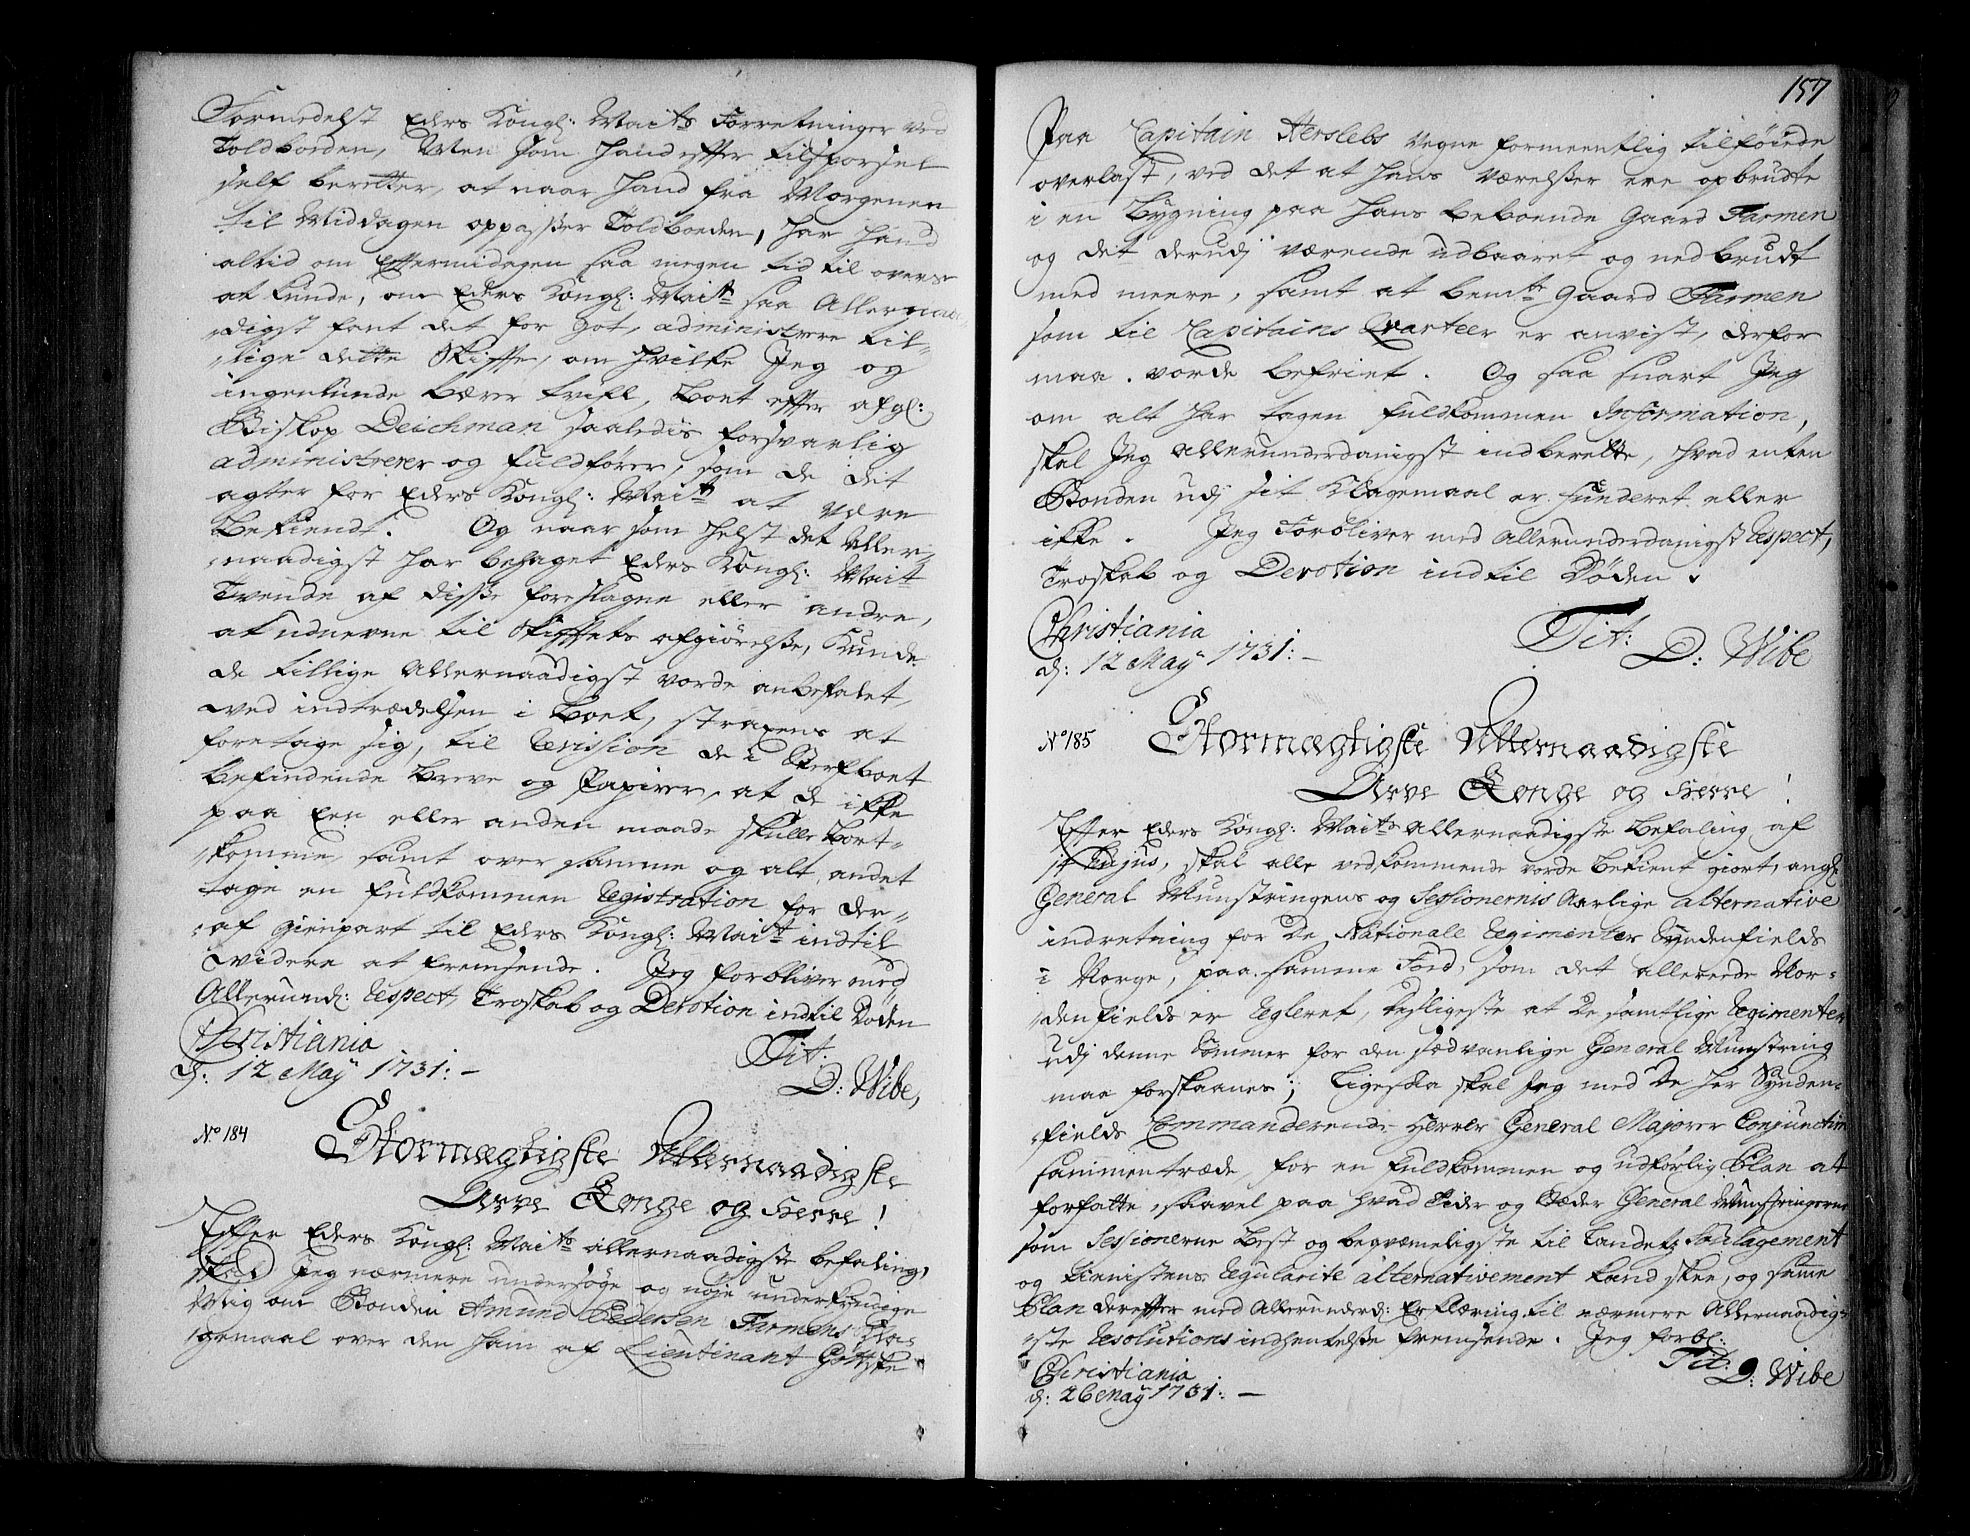 Formedelst Eders Kongl: Maits Forretninger ved
Toldboeden, Men som hand effter tilspørsel
self beretter, at naar hand fra Morgenen
til Middagen oppasser Toldboeden, har hand
altid om Effermidagen saa megen tid til overs
at kunde, om Eders Kongl: Mait saa Allernaa-
digst fant det for got, administrere til-
lige dette Skiffte, om hvilke Jeg og
ingenlunde bærer tvifl, boet effter afgl:
Biskop Deichman saaledis forsvarlig
administrerer og fuldfører, som de dit
agter for Eders Kongl: Mait at være
bekiendt. Og naar som helst det Aller-
naadigst har behaget Eders Kongl: Mait
Tvende af disse foreslagne eller andre,
at udnevne til Skifftets afgiørelse, kunde
de tillige Allernaadigst vorde anbefalet,
ved indtrædelsen i boet, straxens at
foretage sig, til Revision de i Sterfboet
befindende breve og Papirer, at de ikke
paa Een eller anden maade skulle bort-
komme, samt over samme og alt andet
tage en fuldkommen Registration for der-
af gienpart til Eders Kongl: Mait indtil
widere at fremsende. Jeg forbliver med
Allerund: Respect, Troskab og Devotion indtil Døden
Christiania
d: 12 May 1731:-
Tit:
D: Wibe,
No 184
Stormægtigste Allernaadigste
Arve Konge og Herre!
Effter Eders Kongl: Maits allernaadigste befaling,
skal Jeg nærmere undersøge og nøje underkyndige
Mig om Bonden Amund Pedersen Farmens Kla-
gemaal over den ham af Lieutinant
157
Paa Capitain Herslebs vegne formeentlig tilføiede
overlast, ved det at hans værelser ere opbrudte
i en bygning paa hans beboende gaard Farmen
og det derudj værende udbaaret og nedbrudt
med meere, samt at bemte gaard Farmen
som til Capitains Qvarteer er anvist, derfor
maa vorde befriet. Og saa snart Jeg
om alt har tagen fuldkommen Information,
skal Jeg allerunderdanigst indberette, hvad enten
Bonden udj sit Klagemaal er funderet eller
ikke. Jeg Forbliver med Allerunderdanigst Respect,
Troskab og Devotion indtil Døden.
Christiania
d: 12 May 1731:-
Tit:
D: Wibe
No 185
Stormægtigste Allernaadigste
Arve Konge og Herre!
Effter Eders Kongl: Maits allernaadigste befaling af
hujus, skal alle vedkommende vorde bekient giort, angl:
General Munstringens og Sessionernis Aarlige alternative
indretning for De Nationale Regimenter Syndenfields
i Norge, paa samme Fod, som det allereede Nor-
denfields er Regleret, desligeste at De samtlige Regimenter
udj denne Sommer for den sædvanlige General Munstring
maa forskaanes; Ligesaa skal Jeg med De her Synden-
fields Commanderende Herrer General Majorer Conjunctim
sammentræde, for en fuldkommen og udførlig Plan at
forfatte, saavel paa hvad Tider og Stæder General Munstringerne
som Sessionerne best og beqvæmeligste til Landets Soulagement
og Tienistens Regularite alternativement kand skee, og samme
Plan dereffter med Allerunderd: Erklæring til nærmere Allernaadig-
ste Resolutions indhentelse fremsende. Jeg forbl:
Christiania
d: 26 May 1731:-
Tit:
D: Wibe